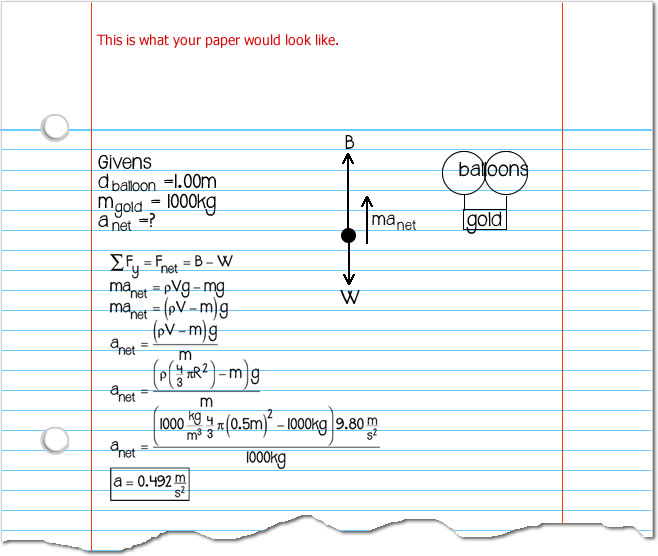 This is what your paper would look like.
Givens
d balloon =1.00m
m gold = 1000kg
a net =?
B
ma net
W
balloons
gold
∑F_y = F_net = B – W
ma_net = ρVg – mg
ma_net = (ρV – m)g
a_net = (ρV – m)g / m
a_net = (ρ(4/3 πR²) – m)g / m
a_net = (1000 kg/m³ 4/3 π(0.5m)² – 1000kg)9.80 m/s² / 1000kg
a = 0.492 m/s²